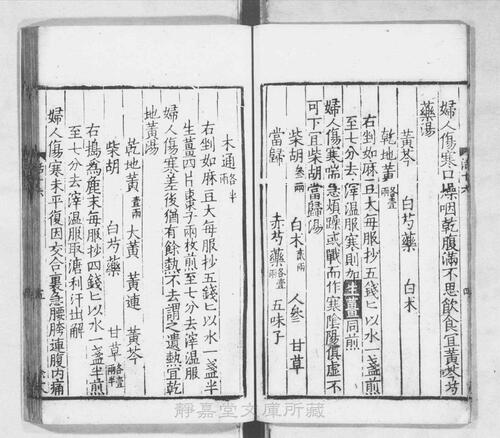 婦人傷寒口燥咽乾腹滿不思飲食宜黃芩芍
藥湯
黃芩 白芍藥 白朮
乾地黃各壹兩
右剉如麻豆大每服抄五錢匕以水一盞煎
至七分去滓温服寒則加生薑同煎
婦人傷寒喘急煩躁或戰而作寒陰陽俱虛不
可下宜柴胡當歸湯
柴胡叁兩 白朮貳兩 人參 甘草
當歸 赤芍藥各壹兩 五味子
木通各半兩
右剉如麻豆大每服抄五錢匕以水一盞半
生薑四片棗子兩枚煎至七分去滓温服
婦人傷寒差後猶有餘熱不去謂之遺熱宜乾
地黃湯
乾地黃 大黃 黃連 黃芩
柴胡 白芍藥 甘草
右搗為麄末每服抄四錢匕以水一盞半煎
至七分去滓温服取溏利汗出解
婦人傷寒未平復因交合裏急腰胯連腹内痛
靜嘉堂文庫所藏